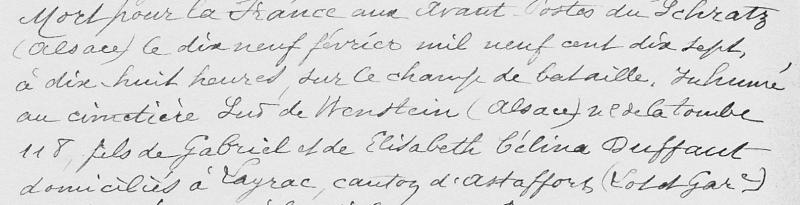 Mort pour la France aux Avant-Postes du Schratz
(Alsace) le dix neuf février mil neuf cent dix sept,
à dix-huit heures, sur le champ de bataille. Inhumé
au cimetière Sud de Wenstein (Alsace) nº de la tombe
118, fils de Gabriel et de Elisabeth Célina Duffaut
domiciliés à Layrac, canton d'Astaffort (Lot et Garº)